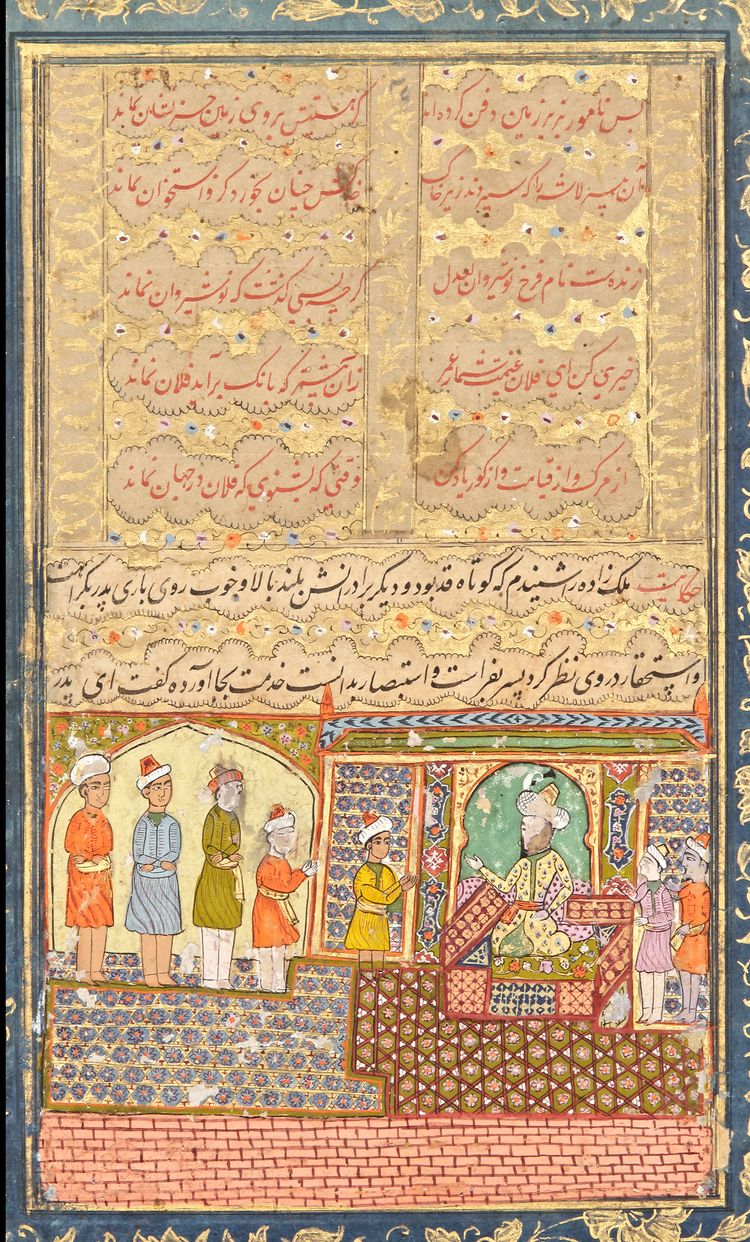 بس نامور بزیر زمین دفن کرده‌اند کز هستیش بروی زمین بر نشان نماند
آن پیر لاشه را که سپردند زیر خاک خاکش چنان بخورد کزو استخوان نماند
زنده‌ست نام فرخ نوشیروان بعدل گرچه بسی گذشت که نوشیروان نماند
خیری کن ای فلان و غنیمت شمار عمر زان پیشتر که بانگ برآید فلان نماند
از مرگ و از قیامت و از گور یاد کن وقتی که بشنوی که فلان در جهان نماند
حکایت ملک زاده را شنیدم که کوتاه قد بود و دیگر برادرانش بلند بالا و خوب روی باری پدر بکراهت
و استحقار در وی نظر کرد پسر بفراست و استبصار بدانست خدمت بجا آورده گفت ای پدر